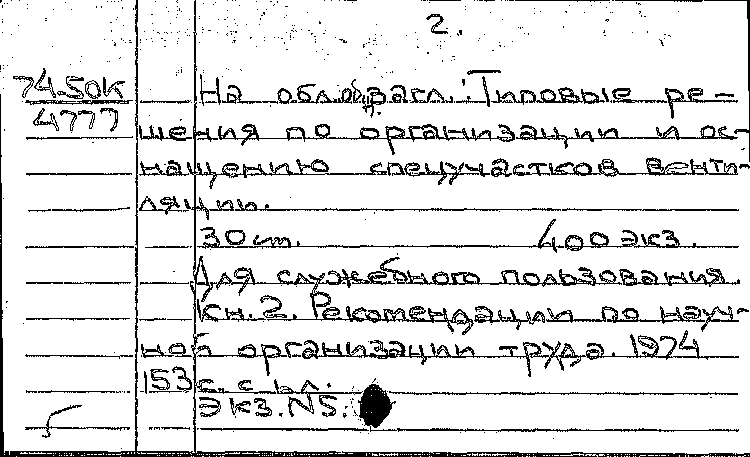 2.
74-50к
4777
На обл. загл.: Типовые ре-
шения по организации и ос-
нащению спецучастков венти-
ляции.
30 см. 400 экз.
Для служебного пользования.
Кн. 2. Рекомендации по науч-
ной организации труда. 1974
153 с. с ил.
Экз. N5.